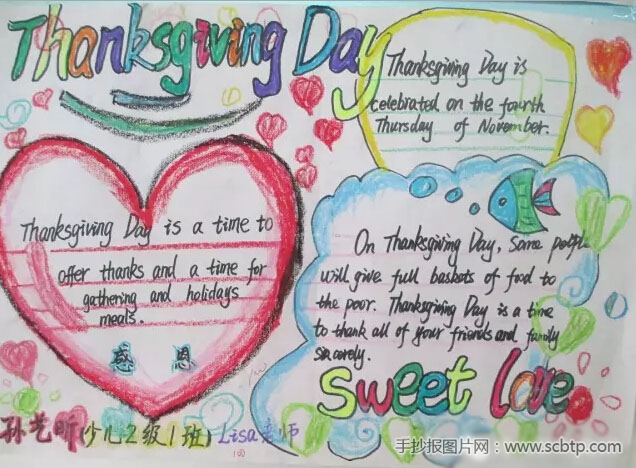 Thanksgiving Day
Thanksgiving Day is
celebrated on the fourth
Thursday of November.
Thanksgiving Day is a time to
offer thanks and a time for
gathering and holidays
meals.
感 恩
On Thanksgiving Day, some people
will give full baskets of food to
the poor. Thanksgiving Day is a time
to thank all of your friends and family
sincerely.
sweet love
孙艺昕(少儿2级1班) Lisa老师
手抄报图片网:www.scbtp.com